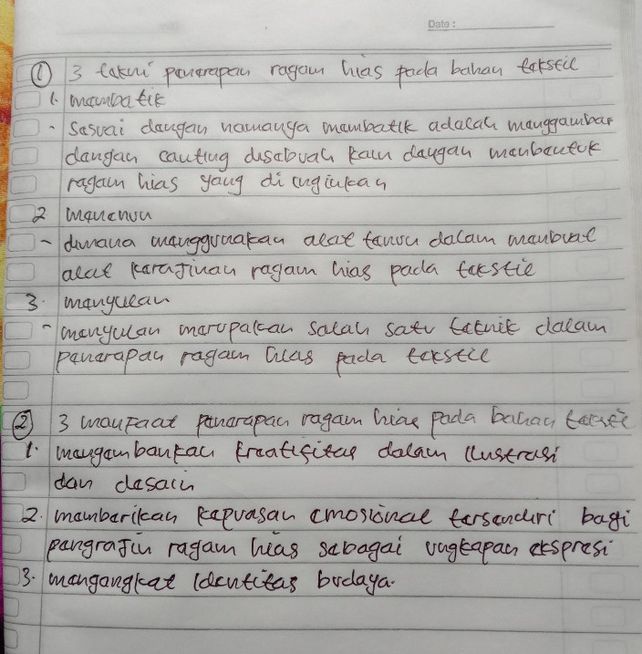 Date :
① 3 tekni penerapan ragam hias pada bahan tekstil
1. membatik
- Sesuai dengan namanya membatik adalah menggambar
dengan canting disebuah kain dengan menbentuk
ragam hias yang di inginkan
2 menenun
- dimana menggunakan alat tenun dalam menbuat
alat kerajinan ragam hias pada tekstil
3. menyulan
- menyulan merupakan salah satu teknik dalam
penerapan ragam hias pada tekstil
② 3 manfaat penerapan ragam hias pada bahan tekstil
1. mengembankan kreatifitas dalam ilustrasi
dan desain
2. memberikan kepuasan emosional tersendiri bagi
pengrajin ragam hias sebagai ungkapan ekspresi
3. mengangkat identitas budaya.